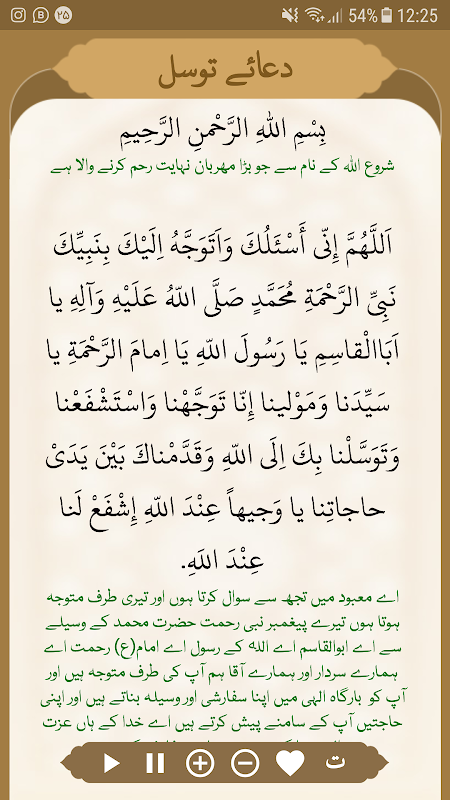 ۲۵ 54% 12:25
دعائے توسل
بِسْمِ اللهِ الرَّحْمنِ الرَّحِيمِ
شروع اللہ کے نام سے جو بڑا مهربان نهایت رحم کرنے والا ہے
اَللَّهُمَّ إِنّى أَسْئَلُكَ وَاَتَوَجَّهُ اِلَيْكَ بِنَبِيِّكَ
نَبِىِّ الرَّحْمَةِ مُحَمَّدٍ صَلَّى اللّهُ عَلَيْهِ وَآلِهِ يا
اَبَاالْقاسِمِ يَا رَسُولَ اللّهِ يَا اِمامَ الرَّحْمَةِ يا
سَيِّدَنا وَمَوْلينا إِنّا تَوَجَّهْنا وَاسْتَشْفَعْنا
وَتَوَسَّلْنا بِكَ اِلَى اللّهِ وَقَدَّمْناكَ بَيْنَ يَدَىْ
حاجاتِنا يا وَجيهاً عِنْدَ اللّهِ إِشْفَعْ لَنا
عِنْدَ اللَهِ.
اے معبود میں تجھ سے سوال کرتا ہوں اور تیری طرف متوجہ
ہوتا ہوں تیرے پیغمبر نبی رحمت حضرت محمد کے وسیلے
سے اے ابوالقاسم اے الله کے رسول اے امام(ع) رحمت اے
ہمارے سردار اور ہمارے آقا ہم آپ کی طرف متوجہ ہیں اور
آپ کو بارگاہ الہی میں اپنا سفارشی اور وسیلہ بناتے ہیں اور اپنی
حاجتیں آپ کے سامنے پیش کرتے ہیں اے خدا کے ہاں عزت
ت